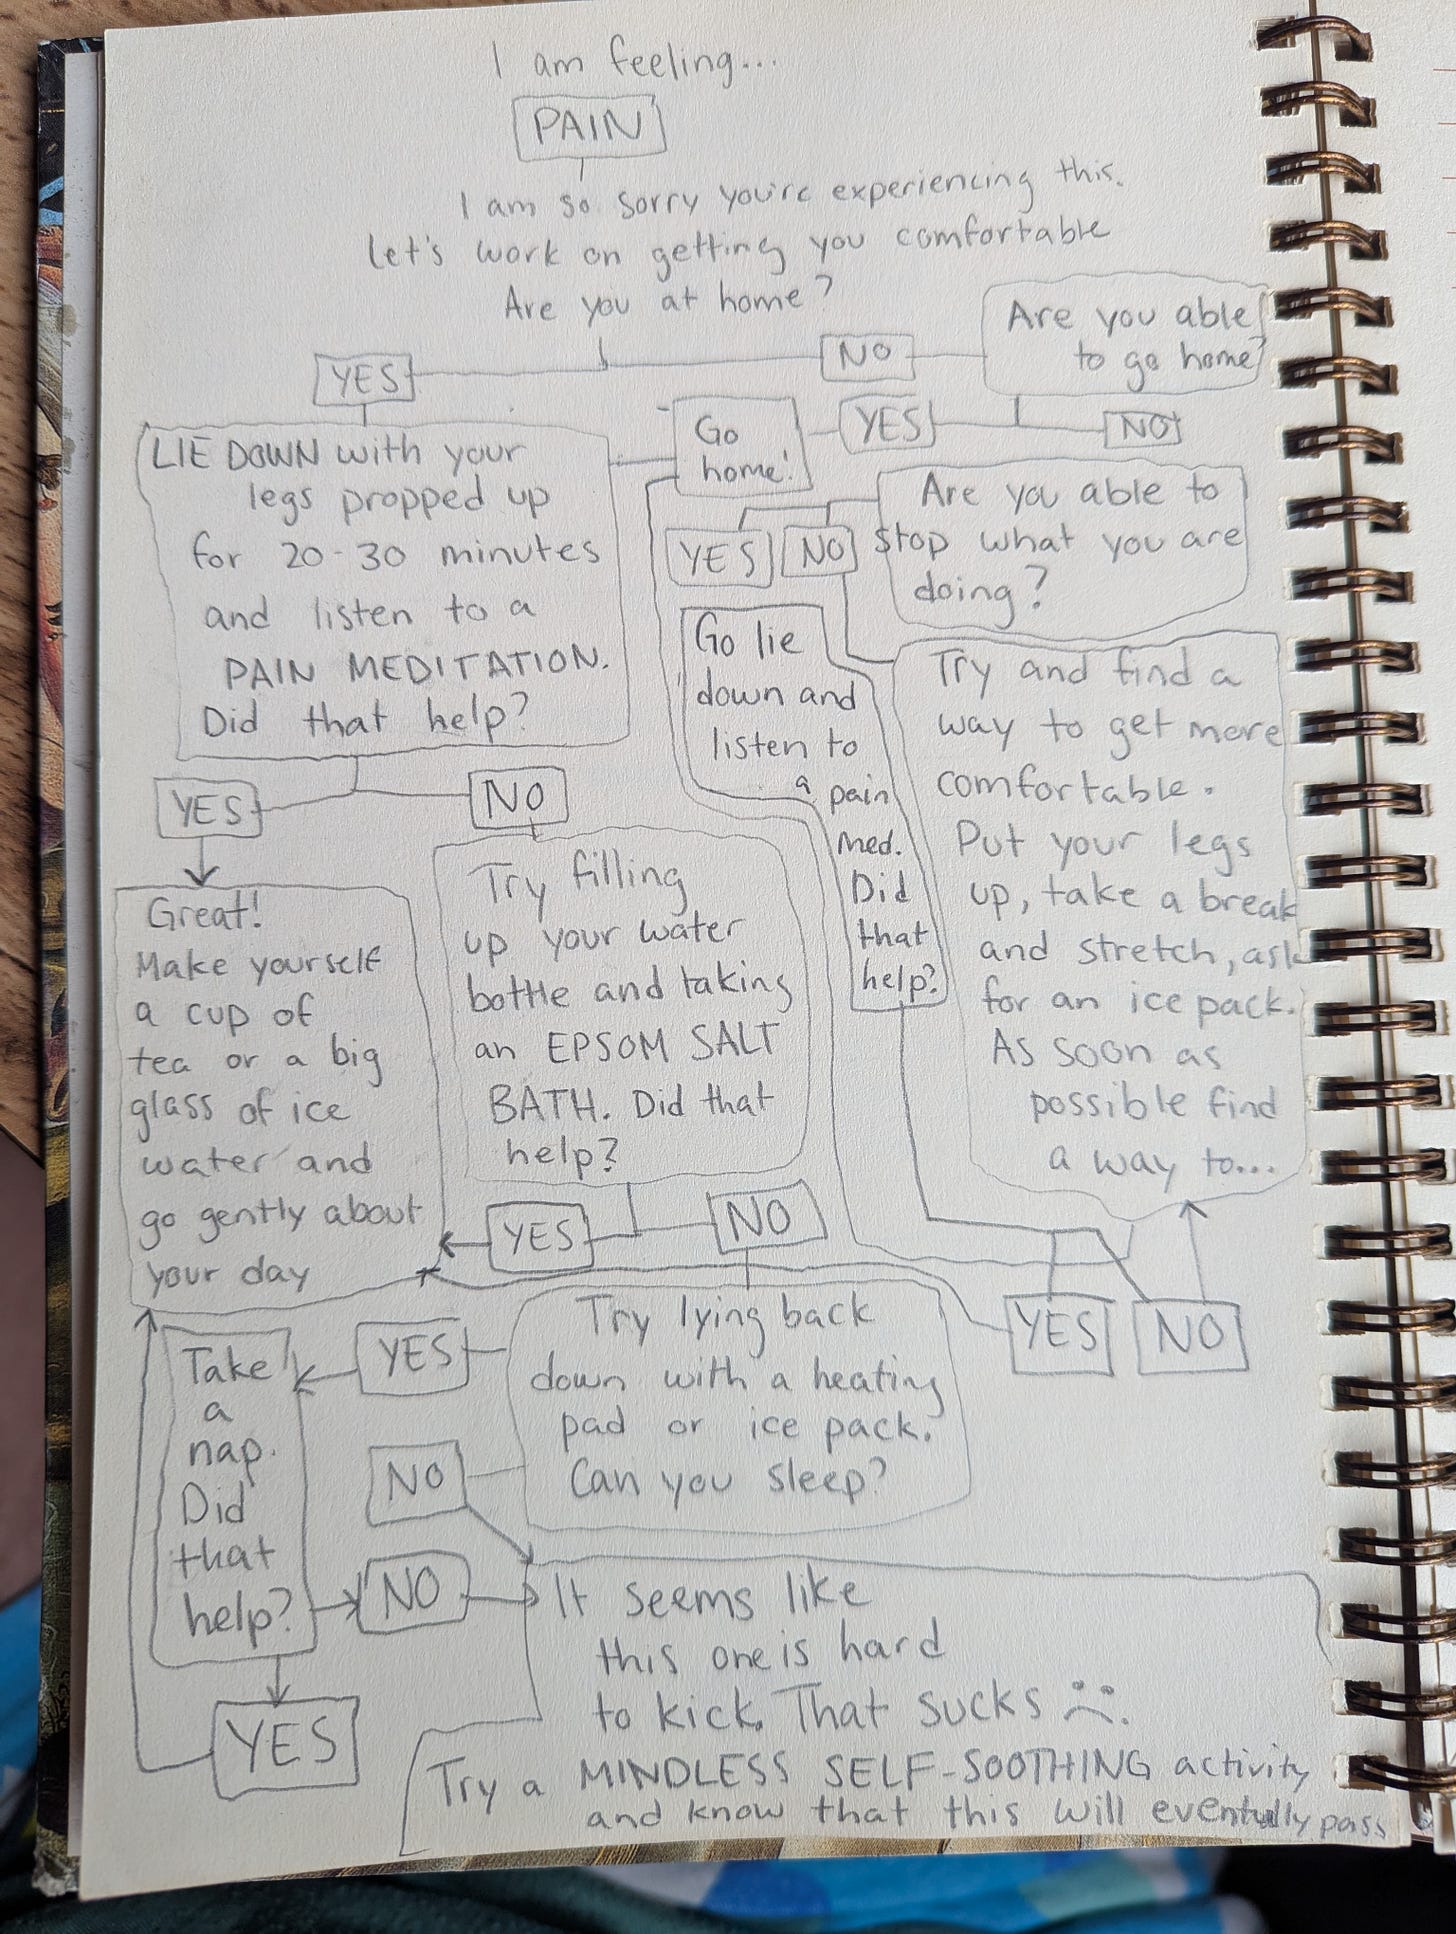 I am feeling...
PAIN
I am so sorry you're experiencing this.
Let's work on getting you comfortable
Are you at home?
YES
NO
Are you able
to go home?
YES
NO
Go
home!
LIE DOWN with your
legs propped up
for 20-30 minutes
and listen to a
PAIN MEDITATION.
Did that help?
Are you able to
stop what you are
doing?
YES
NO
Go lie
down and
listen to
a pain
med.
Did
that
help?
Try and find a
way to get more
comfortable.
Put your legs
up, take a break
and stretch, ask
for an ice pack.
As soon as
possible find
a way to...
YES
NO
YES
NO
Great!
Make yourself
a cup of
tea or a big
glass of ice
water and
go gently about
your day
Try filling
up your water
bottle and taking
an EPSOM SALT
BATH. Did that
help?
YES
NO
Try lying back
down with a heating
pad or ice pack.
Can you sleep?
YES
NO
Take
a
nap.
Did
that
help?
NO
YES
It seems like
this one is hard
to kick. That sucks :(.
Try a MINDLESS SELF-SOOTHING activity
and know that this will eventually pass